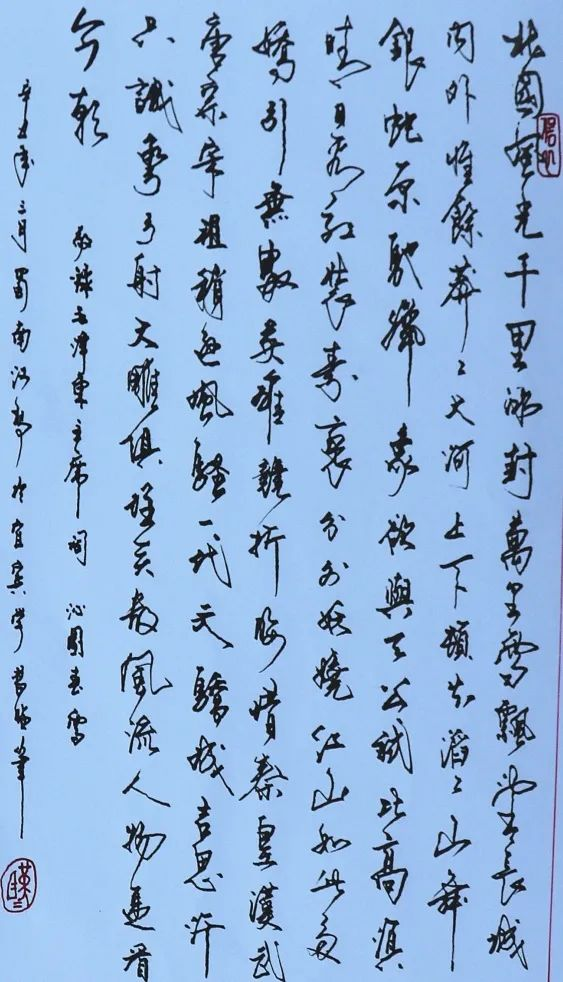 北國風光千里冰封萬里雪飄望長城
内外惟餘莽〻大河上下頓失滔〻山舞
銀蛇原馳蠟象欲與天公試比高須
晴日看紅裝素裹分外妖嬈江山如此多
嬌引無數英雄競折腰惜秦皇漢武
唐宗宋祖稍遜風騷一代天驕成吉思汗
只識彎弓射大雕俱往矣數風流人物還看
今朝
錄毛澤東主席詞 沁園春雪
辛丑年三月蜀南 宜賓學書 筆